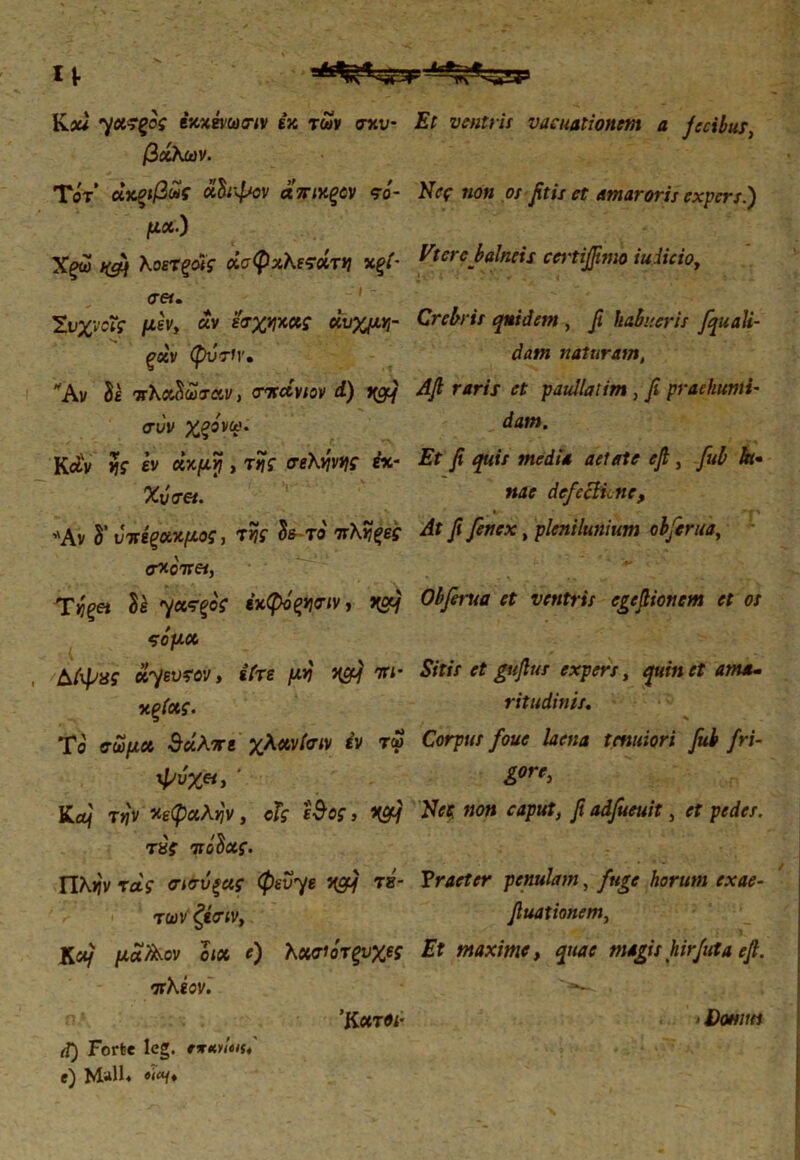 Καὶ γαϛρὸς ἐκκένωσιν ἐκ τῶν σκυ-
βάλων.
Τότ' ἀκριβῶς ἄδιψον ἄπικρον ϛό-
μα.)
Χρῶ καὶ λοετροῖς ἀσφαλεϛάτῃ κρί-
σει.
Συχνοῖς μὲν, ἂν ἔσχηκας αὐχμη-
ρὰν φύσιν.
Ἂν δὲ πλαδῶσαν, σπάνιον d) καὶ
σὺν χρόνῳ.
Κἂν ᾖς ἐν ἀκμῇ, τῆς σελήνης ἐκ-
λύσει.
Ἂν δ' ὑπέρακμος, τῆς δὲ τὸ πλῆρες
σκόπει,
Τήρει δὲ γαϛρὸς ἐκφόρησιν, καὶ
ϛόμα
Δίψȣς ἄγευϛον, εἴτε μὴ καὶ πι-
κρίας.
Τὸ σῶμα θάλπε χλανίσιν ἐν τῷ
ψύχει,
Καὶ τὴν κεφαλὴν, οἷς ἔθος, καὶ
τȣ̀ς πόδας.
Πλὴν τὰς σισύρας φεῦγε καὶ τȣ́-
των ζέσιν,
Καὶ μᾶλλον οἷα e) λασιότριχες
πλέον.
Κατοι-
d) Forte leg. σπανίοις.
e) Mall. οἷαι.
Et ventris vacuationem a fecibus,
Neq; non os sitis et amaroris expers.)
Vtere balneis certissimo iudicio,
Crebris quidem, si habueris squali-
dam naturam,
Ast raris et paullatim, si praehumi-
dam.
Et si quis media aetate est, sub lu-
nae defectione,
At si senex, plenilunium obserua,
Obserua et ventris egestionem et os
Sitis et gustus expers, quin et ama-
ritudinis.
Corpus foue laena tenuiori sub fri-
gore,
Neq; non caput, si adsueuit, et pedes.
Praeter penulam, fuge horum exae-
stuationem,
Et maxime, quae magis hirsuta est.
Domus